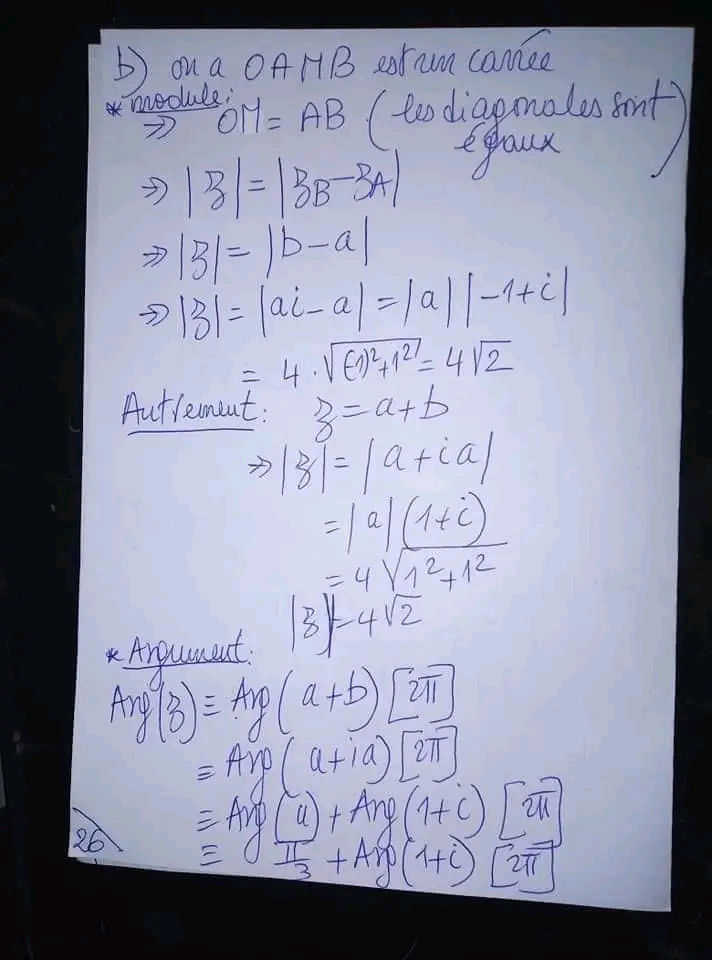 b) on a OAMB est un carrée
* module:
=> OM = AB (les diagonales sont
égaux)
=> |z| = |zB - zA|
=> |z| = |b - a|
=> |z| = |ai - a| = |a| |-1+i|
= 4 . √((-1)²+1²) = 4√2
Autrement: z = a+b
=> |z| = |a + ia|
= |a| (1+i)
= 4 √(1²+1²)
|z| = 4√2
* Argument:
Arg(z) ≡ Arg(a+b) [2π]
≡ Arg(a+ia) [2π]
≡ Arg(a) + Arg(1+i) [2π]
≡ π/3 + Arg(1+i) [2π]
26